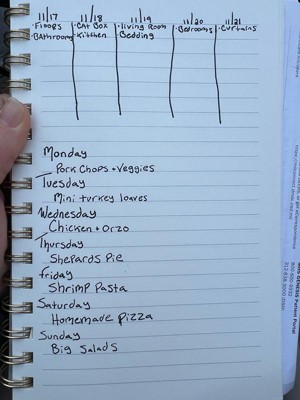 11/17 11/18 11/19 11/20 11/21
·Floors ·Cat Box ·living Room ·Bedrooms ·Curtains
·Bathroom ·Kitchen Bedding
Monday
Pork Chops + Veggies
Tuesday
Mini turkey loaves
Wednesday
Chicken + Orzo
Thursday
Shepards Pie
Friday
Shrimp Pasta
Saturday
Homemade Pizza
Sunday
Big Salads